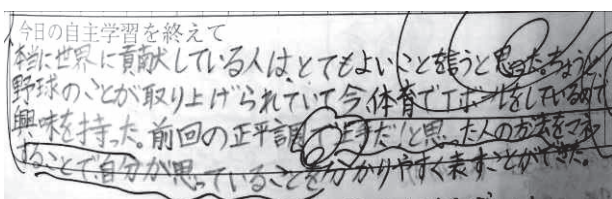 今日の自主学習を終えて
本当に世界に貢献している人は、とてもよいことを言うと思った。ちょうど
野球のことが取り上げられていて今、体育でTボールをしているので
興味を持った。前回の正平調で上手だと思った人の方法をマネ
することで、自分が思っていることを分かりやすく表すことができた。